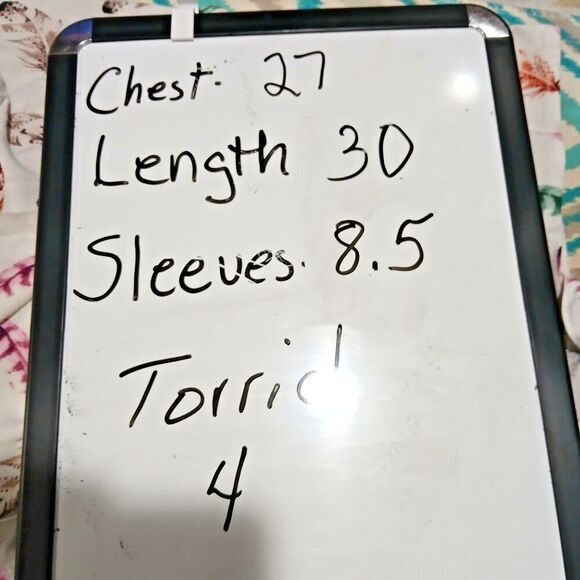 Chest. 27
Length 30
Sleeves. 8.5
Torrid
4